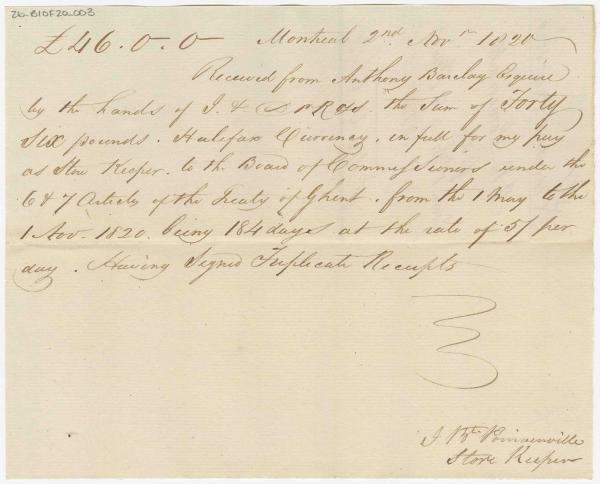 26-B10F20-003
£46.0.0 Montreal 2nd Novr 1820
Received from Anthony Barclay Esquire
by the hands of I. & D the Sum of Forty
Six pounds. Halifax Currency. in full for my pay
as Store Keeper. to the Board of Commissioners under the
6 & 7 Articles of the Treaty of Ghent. from the 1 May to the
1 Nov. 1820. being 184 days at the rate of 5/ per
day. Having Signed Triplicate Receipts
J. Bte
Store Keeper